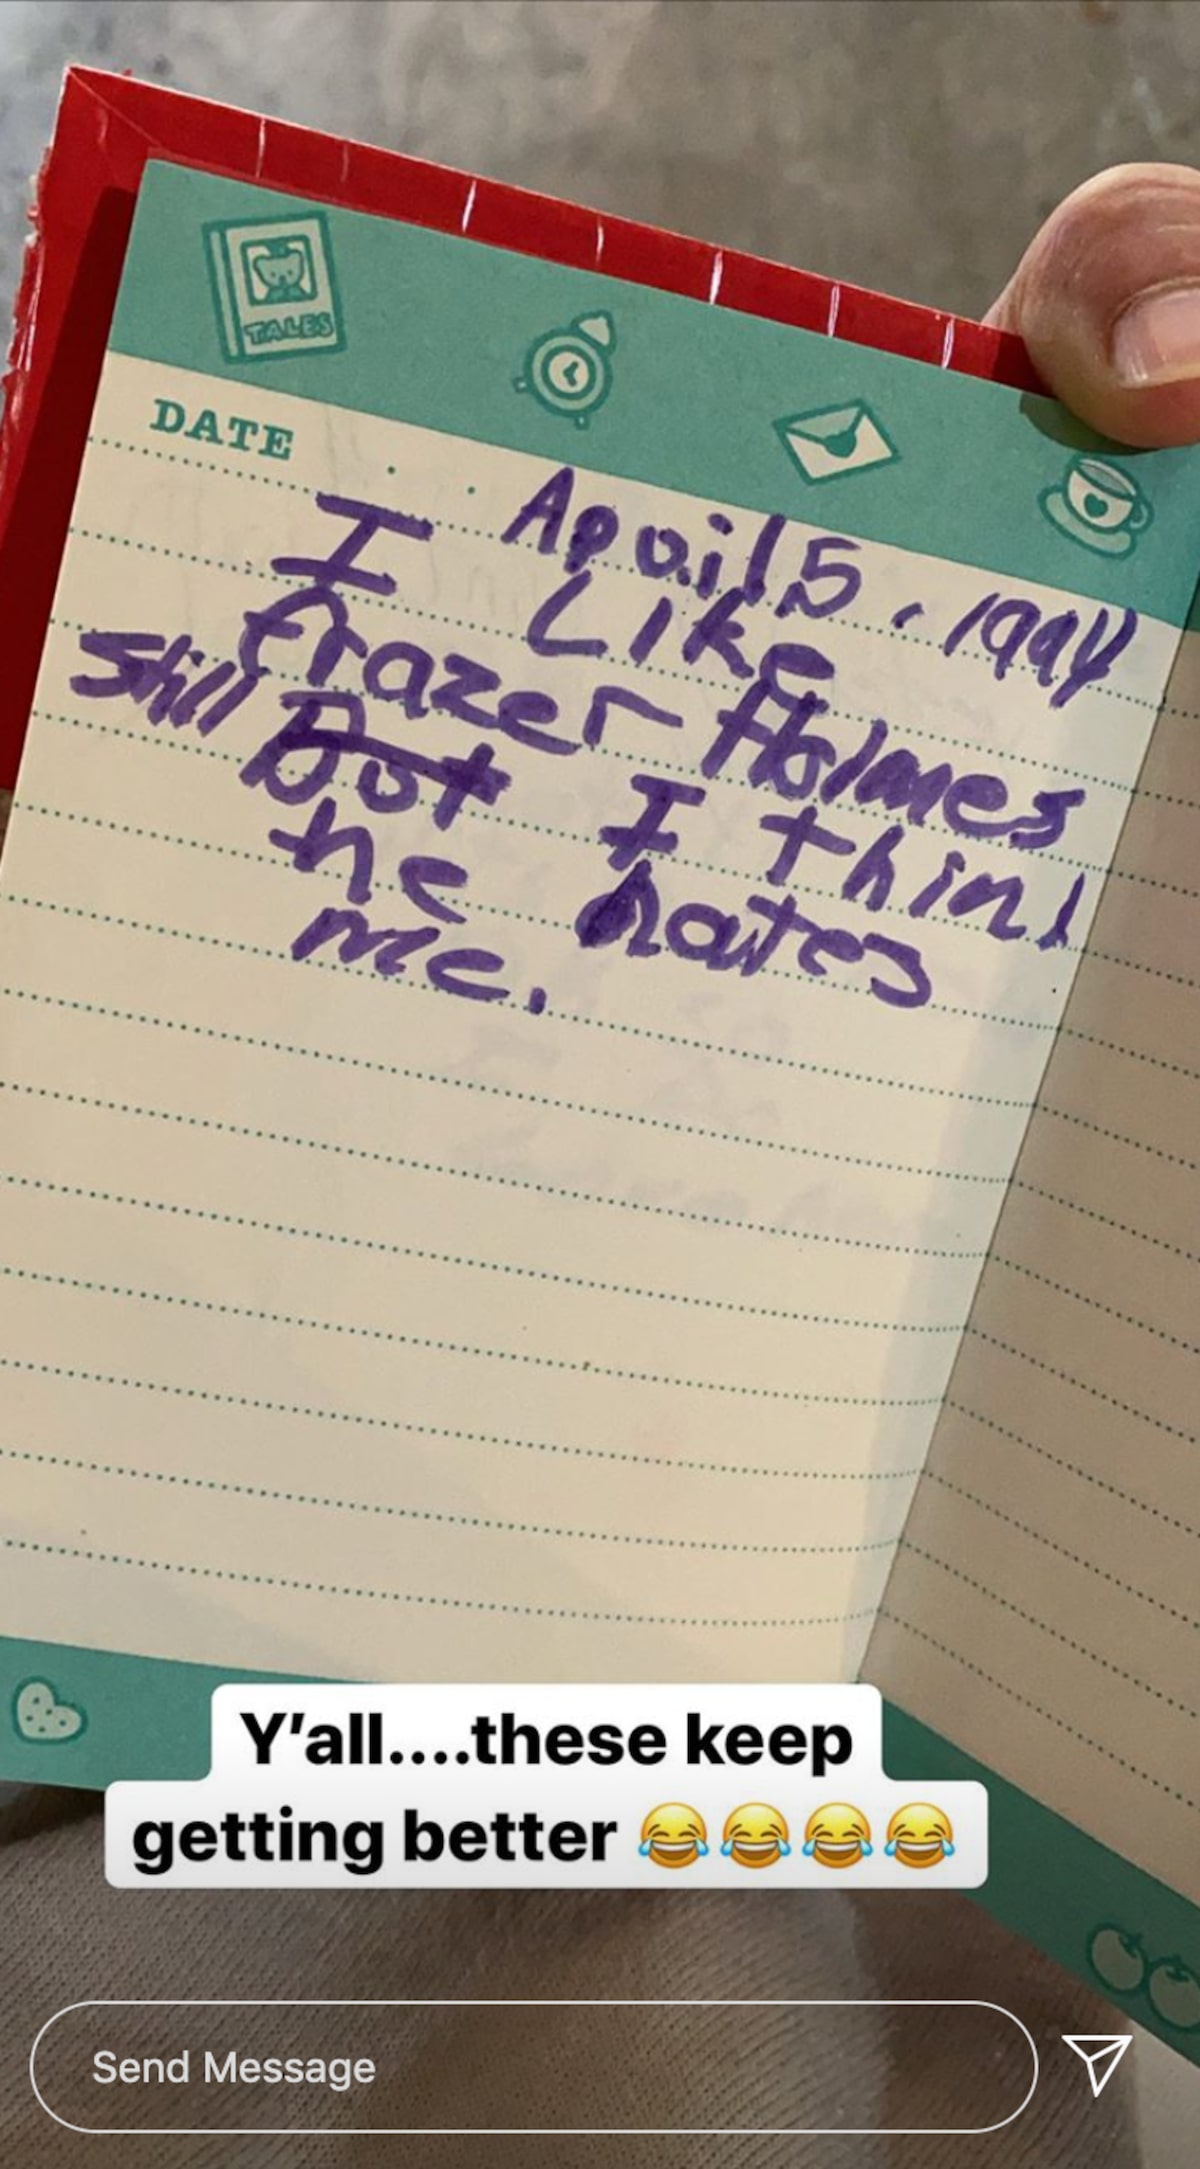 TALES
DATE
April 5, 1994
I Like
Frazer Holmes
still But I thin
he hates
me.
Y'all....these keep
getting better 😂😂😂😂
Send Message